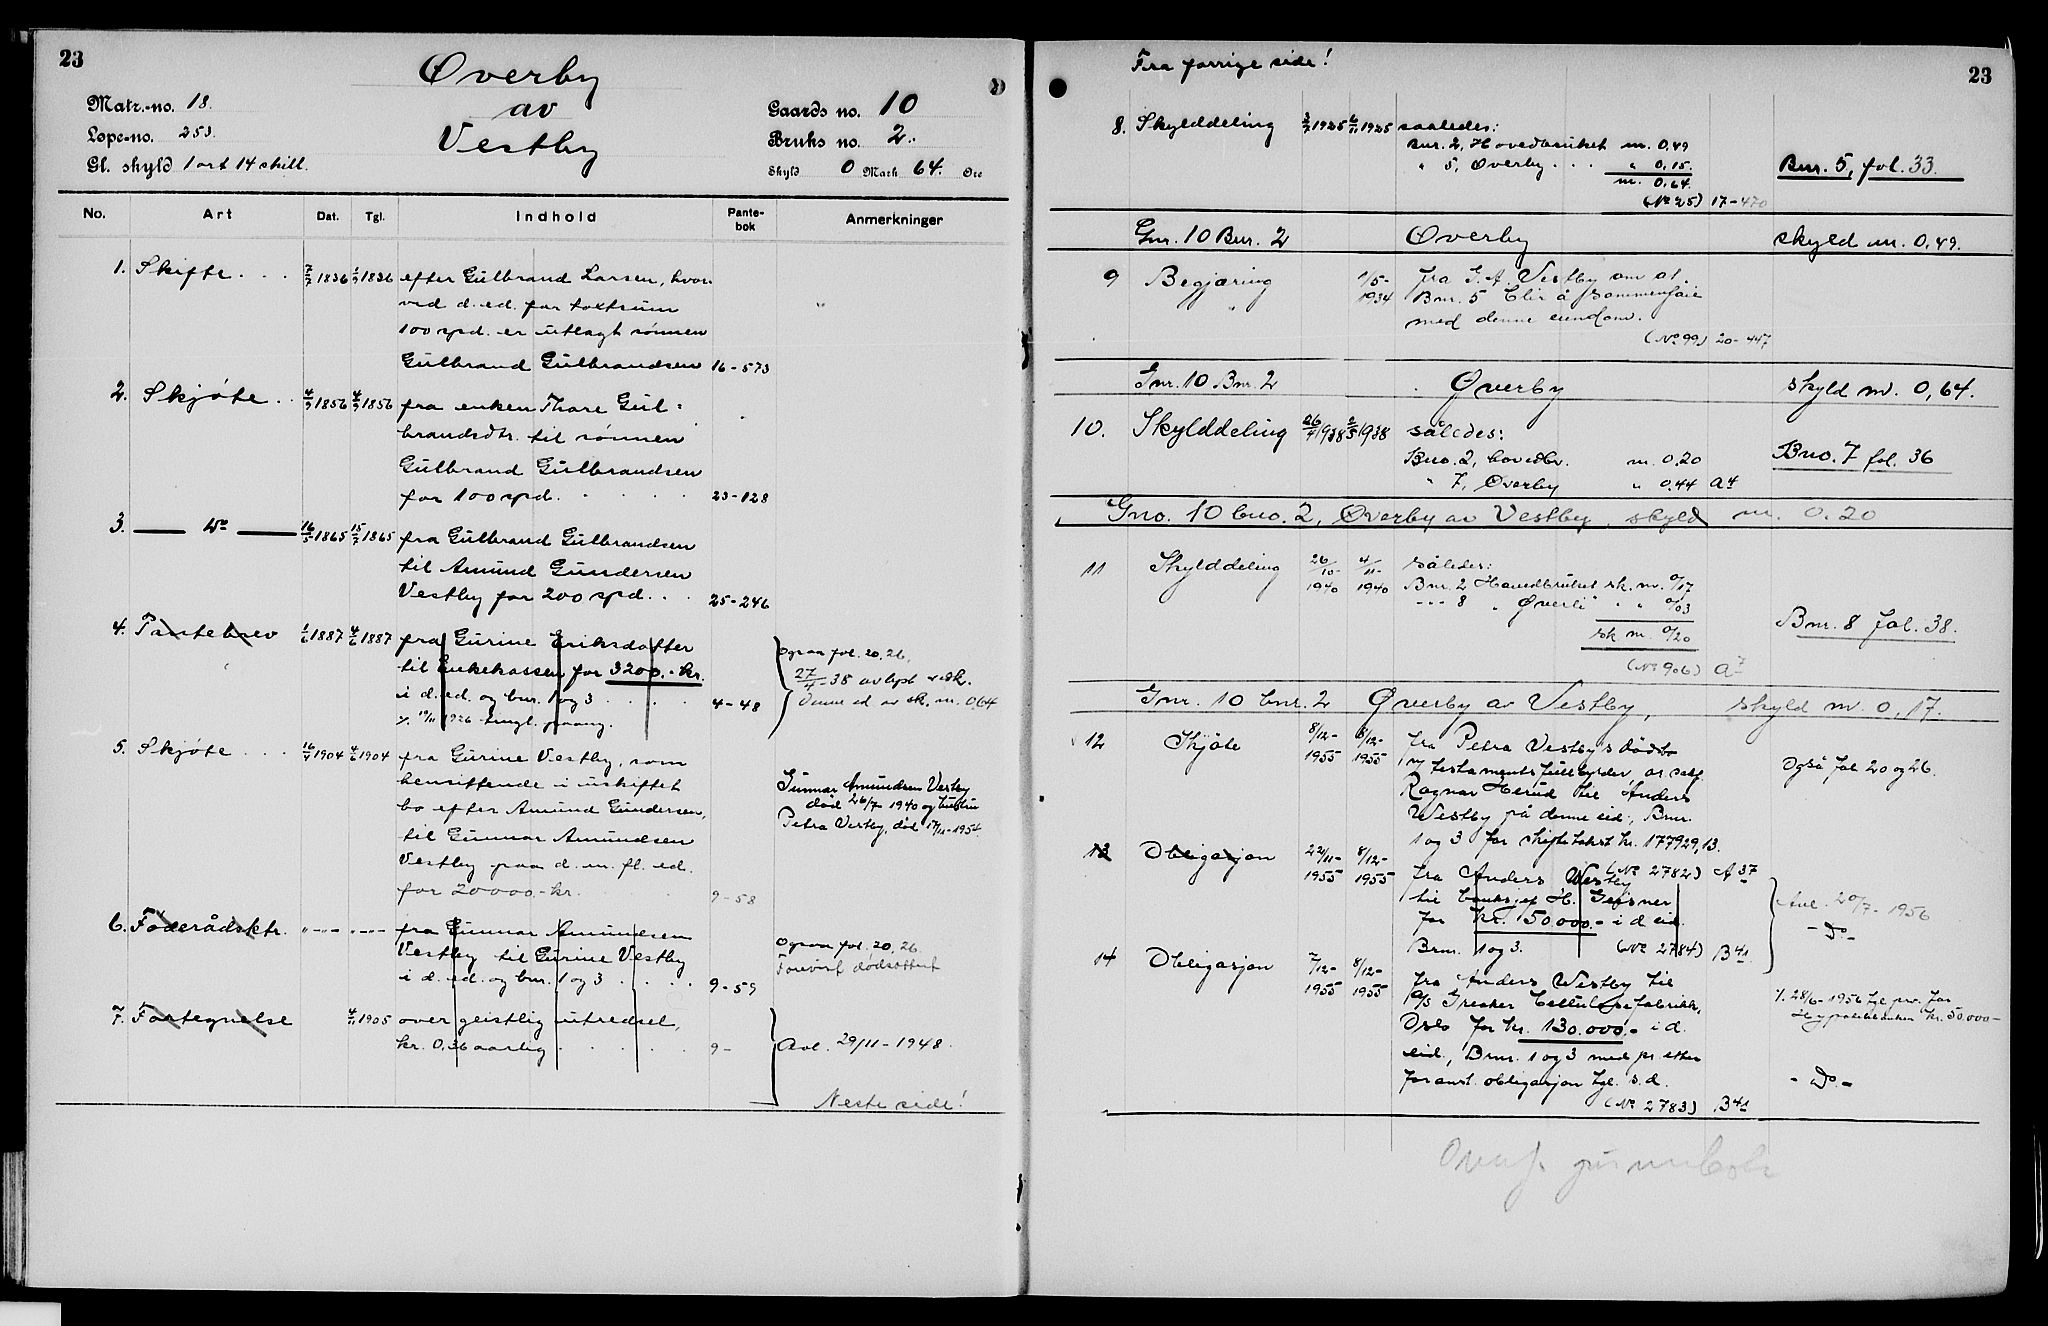 23
Øverby
av
Vestby
Matr.-no. 18.
Løpe-no. 253.
Gl. skyld 1 ort 14 skill.
Gaards no. 10
Bruks no. 2.
Skyld 0 Mark 64. Øre
No. Art Dat. Tgl. Indhold Pante-bok Anmerkninger
1. Skifte . . . 7/7 1836 1/9 1836 efter Gulbrand Larsen, hvor-
ved d. ed. for taxtsum
100 spd. er utlagt sønnen
Gulbrand Gulbrandsen 16-573
2. Skjøte . . 4/9 1856 4/9 1856 fra enken Thore Gul-
brandsdtr. til sønnen
Gulbrand Gulbrandsen
for 100 spd. . . . . 23-128
3. — Do — 16/5 1865 15/7 1865 fra Gulbrand Gulbrandsen
til Amund Gundersen
Vestby for 200 spd. . . 25-246
4. Pantebrev 1/6 1887 4/6 1887 fra Gurine Eriksdatter
til Enkekassen for 3200.- kr.
i d. ed. og bnr. 1 og 3 . . . 4-48
% 19/11 1926 tingl. paany.
Ogsaa fol. 20, 26.
27/4-38 avlyst vedk.
denne ed. av sk. m. 0,64
5. Skjøte . . . 16/4 1904 4/6 1904 fra Gurine Vestby, som
hensittende i uskiftet
bo efter Amund Gundersen,
til Gunnar Amundsen
Vestby paa d. m. fl. ed.
for 20000.- kr. 9-58
Gunnar Amundsen Vestby
død 26/7 1940 og hustru
Petra Vestby, død 17/11-1954
6. Føderådsktr. "-"-" "-"-" fra Gunnar Amundsen
Vestby til Gurine Vestby
i d. ed. og bnr. 1 og 3 . . . . 9-59
Ogsaa fol. 20, 26.
Forevist dødsattest
7. Fortegnelse 4/11 1905 over geistlig utredsel,
kr. 0,36 aarlig . . . . . 9-
Avl. 29/11-1948.
Neste side!
Fra forrige side!
23
8. Skylddeling 3/7 1925 6/11 1925 saaledes:
Bnr. 2, Hovedbruket m. 0,49
" 5, Øverby . . . " 0,15.
m. 0,64.
(No 25) 17-470
Bnr. 5, fol. 33.
Gnr. 10 Bnr. 2 Øverby skyld m. 0,49.
9 Begjæring 1/5-1934 fra G. A. Vestby om at
Bnr. 5 blir å sammenføie
med denne eiendom.
(No 99) 20-447
Gnr. 10 Bnr. 2 Øverby skyld m. 0,64.
10. Skylddeling 26/4 1938 2/5 1938 således:
Bno. 2, hovedbr. m. 0,20
" 7, Øverby " 0,44 A4
Bno. 7 fol. 36
Gno. 10 bno. 2, Øverby av Vestby, skyld m. 0.20
11 Skylddeling 26/10-1940 4/11-1940 således:
Bnr. 2 Hovedbruket sk. m. 0/17
--- 8 " Øverli " " " 0/03
sk m. 0/20
(No 906) A7
Bnr. 8 fol. 38.
Gnr. 10 bnr. 2 Øverby av Vestby, skyld m. 0,17.
12 Skjøte 8/12-1955 8/12-1955 fra Petra Vestbys dødsbo
v/ testamentsfullbyrder, o.r.sakf.
Ragnar Herud til Anders
Westby på denne eid., Bnr.
1 og 3 for skiftetakst kr. 177929,13.
(No 2782) A37
Også fol. 20 og 26.
13 Obligasjon 22/11-1955 8/12-1955 fra Anders Westby
til banksjef H. Geisner
for kr. 50.000.- i d. eid.
Bnr. 1 og 3. (No 2784) B41
Avl. 20/7-1956
- Do -
14 Obligasjon 7/12-1955 8/12-1955 fra Anders Westby til
A/S Greaker Cellulosefabrikk,
Oslo for kr. 130.000.- i d.
eid., Bnr. 1 og 3 med pr. etter
foranst. obligasjon tgl. s.d.
(No 2783) B41
% 28/6-1956 tgl. prv. for
Hypotekbanken kr. 50.000-
- Do -